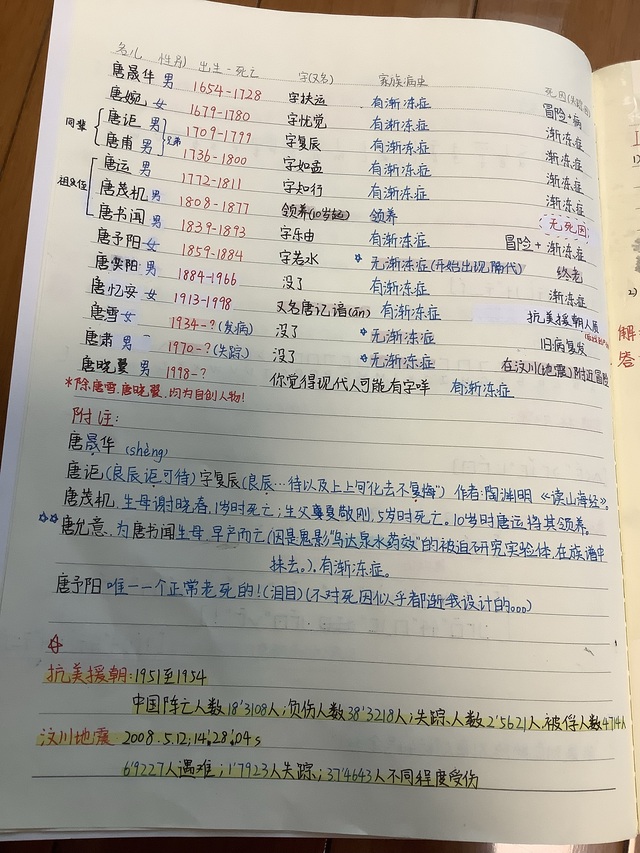 名儿 性别 出生-死亡 字(又名) 家族病史 死因(失踪
唐晟华 男 1654-1728 字扶运 有渐冻症 冒险+病
唐婉 女 1679-1780 字忧觉 有渐冻症 渐冻症
同辈 唐讵 男 1709-1799 字复辰 有渐冻症 渐冻症
唐甫 男 兄弟 1736-1800 字如孟 有渐冻症 渐冻症
祖义位 唐运 男 1772-1811 字知行 有渐冻症 渐冻症
唐茂机 男 1808-1877 领养(10岁起) 领养 无死因
唐书闻 男 1839-1893 字乐由 有渐冻症 冒险+渐冻症
唐予阳 女 1859-1884 字若水 ☆无渐冻症(开始出现隔代) 终老
男 1884-1966 没了 有渐冻症 渐冻症
唐忆安 女 1913-1998 又名唐记,谙(ān) 有渐冻症 抗美援朝人员
唐雪 女 1934-?(发病) 没了 *无渐冻症 旧病复发
唐肃 男 1970-?(失踪) 没了 *无渐冻症 在汶川(地震)附近冒险
唐晓翼 男 1998-? 你觉得现代人可能有字咩 有渐冻症
*除唐雪,唐晓翼,均为自创人物!
附注:
唐晟华 (shèng)
唐讵(良辰讵可待)字复辰(良辰…待以及上上句“化去不复悔”) 作者:陶渊明《读山海经》。
唐茂机,生母谢晓春,1岁时死亡;生父敬刚,5岁时死亡。10岁时唐运将其领养。
☆☆唐允意,为唐书闻生母,早产而亡(因是鬼影“乌达泉水药效”的被迫研究实验体,在族谱中
抹去。),有渐冻症。
唐予阳 唯一一个正常老死的!(泪目)(不对死因似乎都是我设计的。。。)
抗美援朝:1951至1954
中国阵亡人数18'3108人;负伤人数38'3218人;失踪人数2'5621人,被俘人数4714人
汶川地震 2008.5.12;14:28:04s
6'9227人遇难;1'7923人失踪;37'4643人不同程度受伤